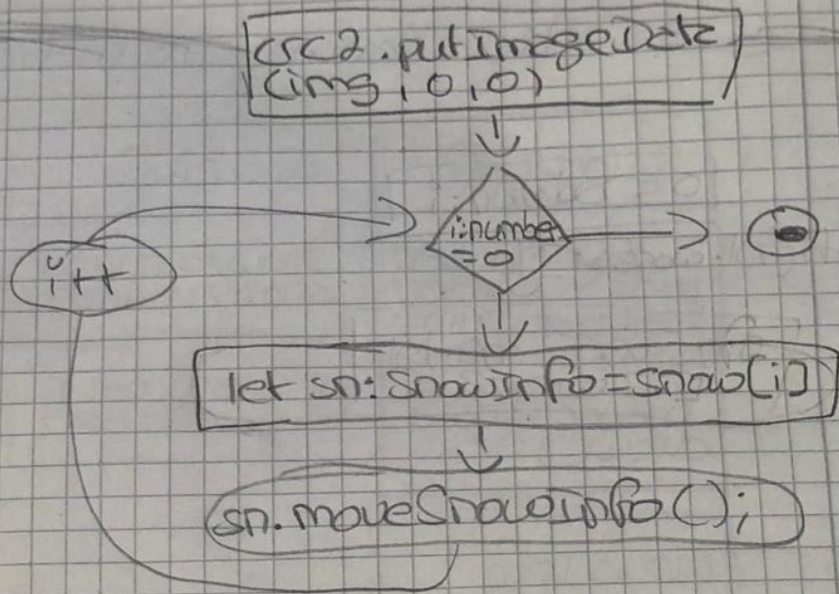 crc2.putImageData
(img, 0, 0)
i:number
= 0
i++
let sn: SnowInfo = snow[i]
sn.moveSnowInfo();